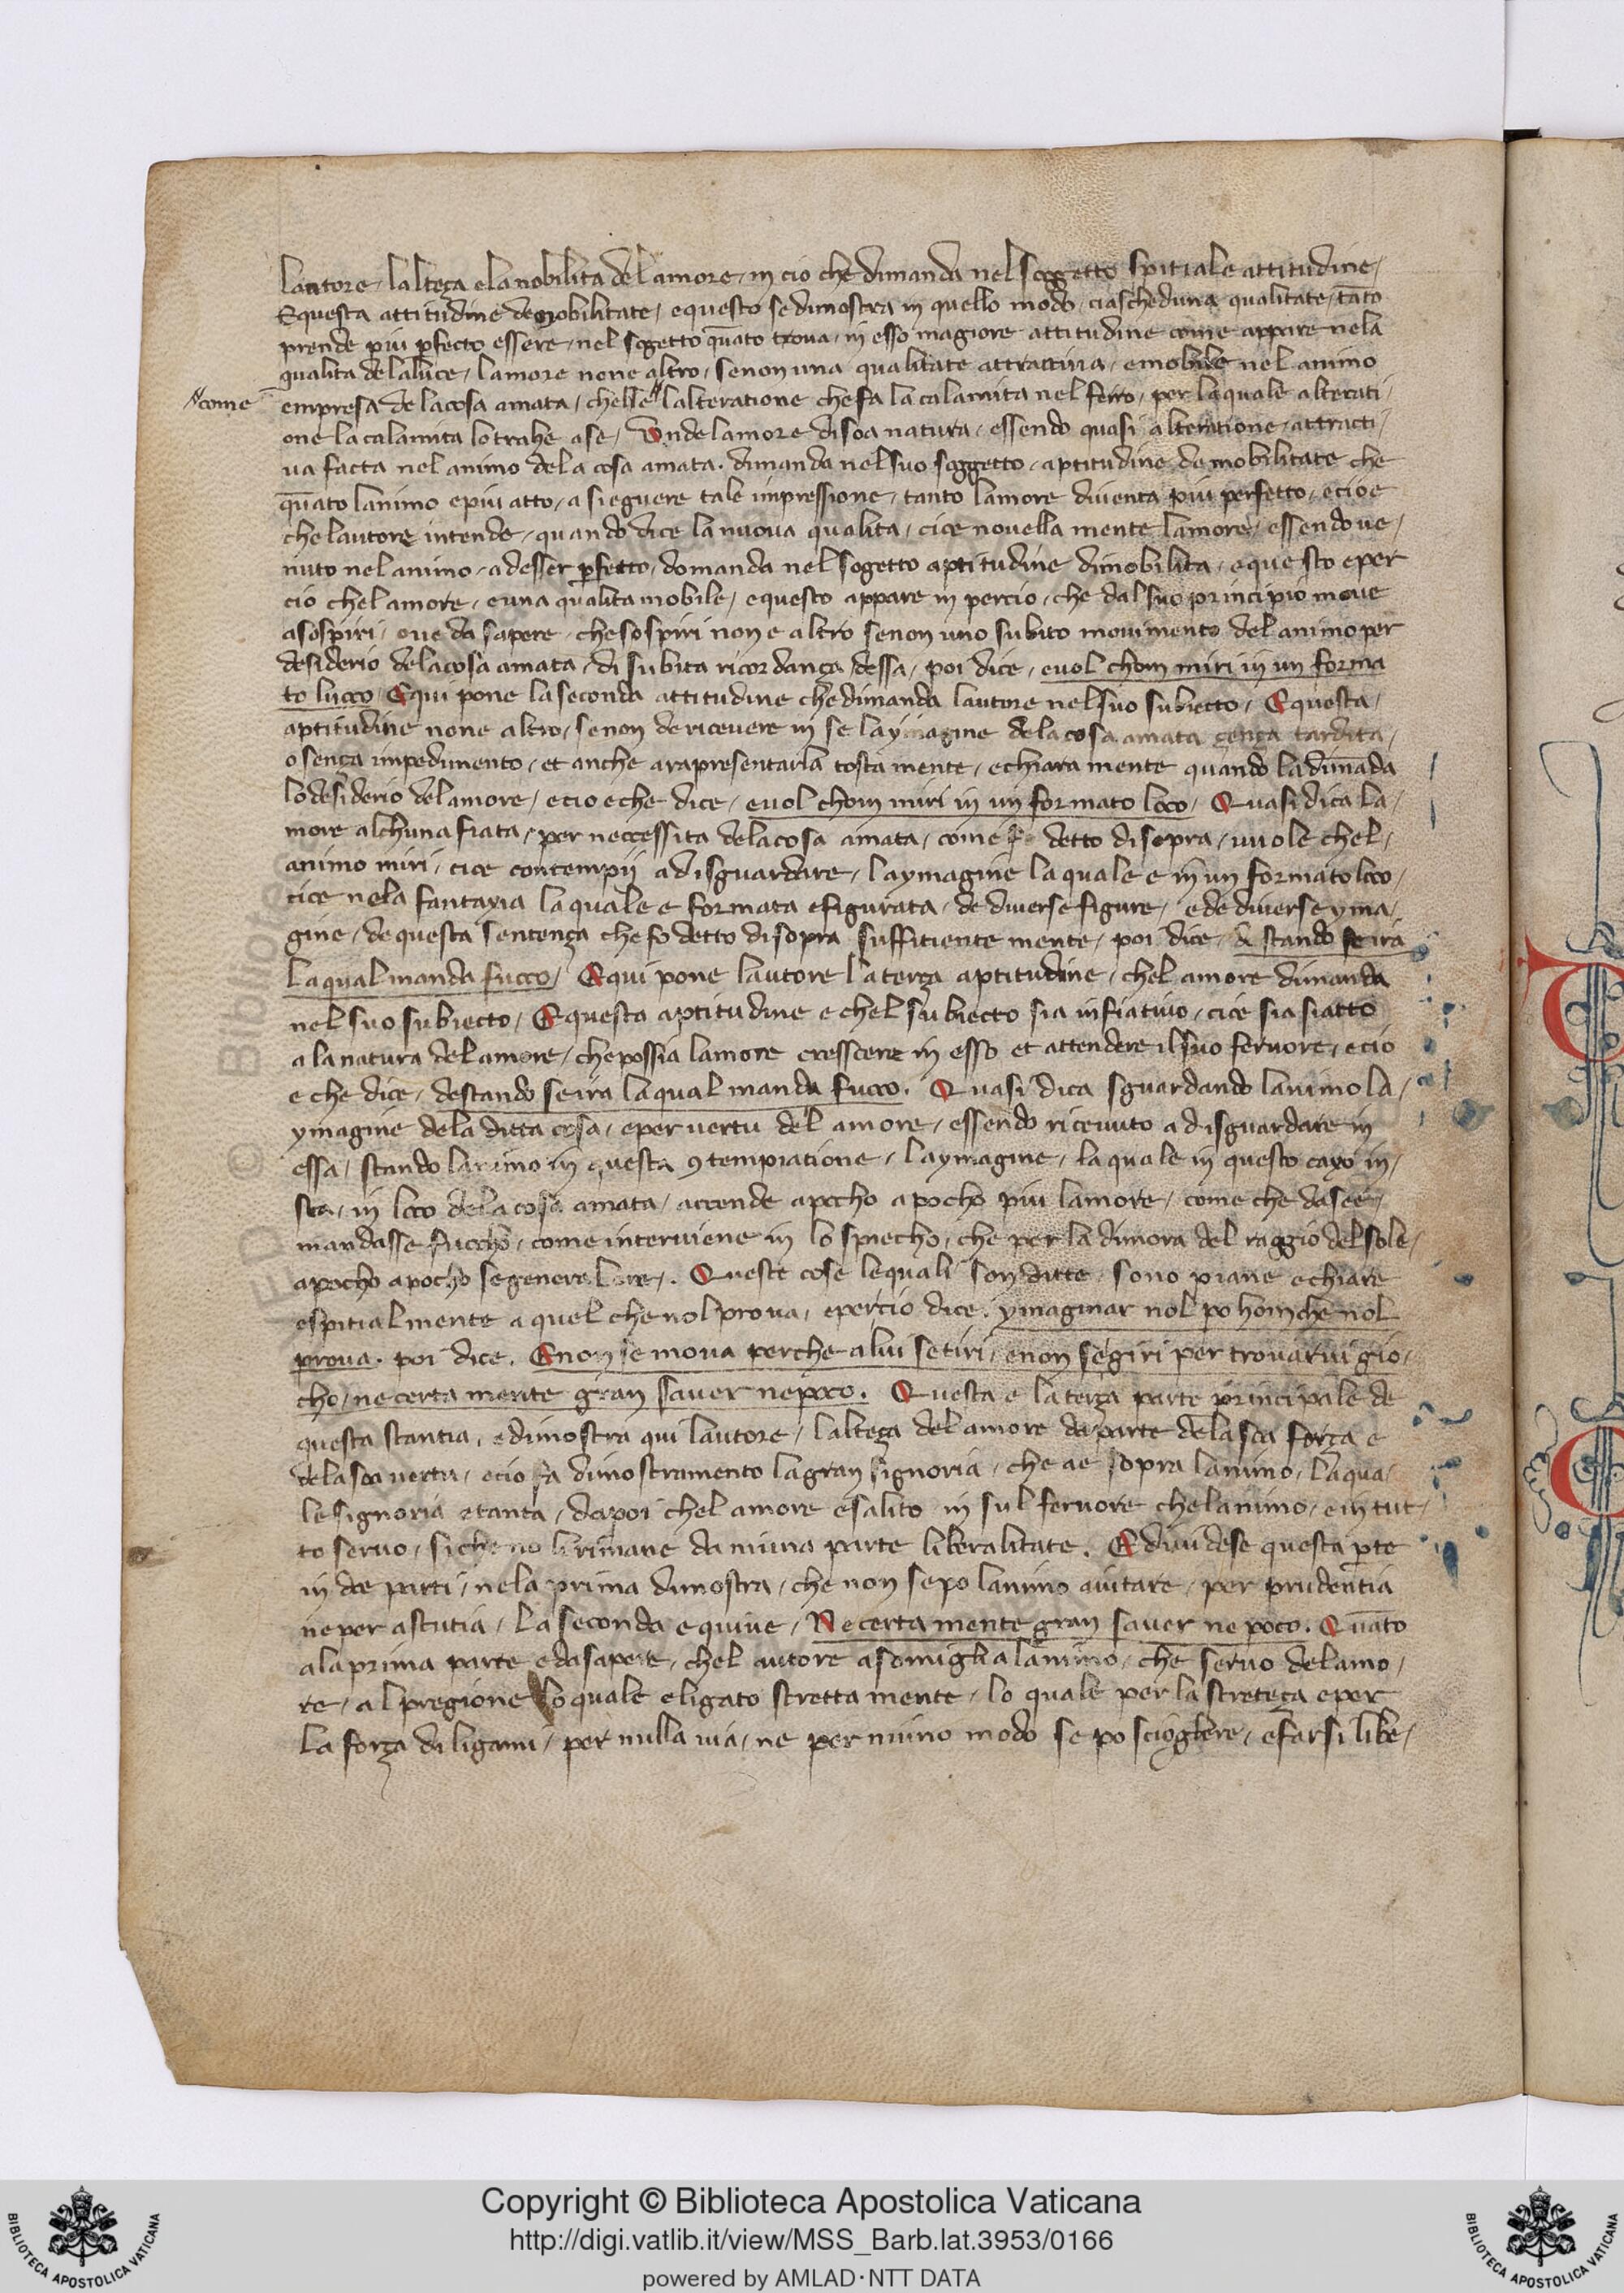 lautore / lalteça e la nobilita del amore / in cio che dimanda nel soggetto spitiale attitudine /
Equesta attitudine de mobilitate / e questo se dimostra in quello modo / ciascheduna qualitate / tāto
prende piu pfecto essere / nel sogetto quāto trova / in esso magiore attitudine come appare nela
qualita de la luce / lamore none altro / senon una qualitate attractiva / e mobile nel animo
come
empresa de la cosa amata / chelle lalteratione che fa la calamita nel ferro / per la quale alterati /
one la calamita lo trahe a se / Onde lamore di soa natura / essendo quasi alteratione attracti /
va facta nel animo dela cosa amata . dimanda nel suo soggetto / aptitudine de mobilitate che
quāto lanimo e piu atto / a sieguere tale impressione / tanto lamore diventa piu perfetto / e cio e
che lautore intende / quando dice la nuova qualita / cioe novella mente lamore / essendo ve /
nuto nel animo / adesser pfetto / domanda nel sogetto aptitudine di mobilita / e questo e per
cio chel amore / e una qualita mobile / e questo appare in percio / che dal suo principio move
a sospiri / ove da sapere / che sospiri non e altro senon uno subito movimento del animo per
desiderio dela cosa amata / di subita ricordança dessa / poi dice / evol chom miri in un forma
to lucco / Equi pone la seconda attitudine che dimanda lautore nel suo subiecto / Equesta /
aptitudine none altro / senon de ricevere in se la ymagine dela cosa amata gença tardita /
o sença impedimento / et anche a rapresentarla tosta mente / e chiara mente quando la dimāda
lo desiderio del amore / e cio e che dice / evol chom miri in un formato loco / Quasi dica la /
more alchuna fiata / per neccessita dela cosa amata / come detto di sopra / vuole chel /
animo miri / cioe contempii a disguardare / la ymagine la quale e in un formato loco /
cioe nela fantaxia la quale e formata e figurata / de diverse figure / e de diverse yma /
gine / de questa sentença che fo detto di sopra suffitiente mente / poi dice / destando se ira
La qual manda fucco / Equi pone lautore la terça aptitudine / chel amore dimanda
nel suo subiecto / Equesta aptitudine e chel subiecto sia infiativo / cioe sia si atto
a la natura del amore / che possia lamore cresscere in esso et attendere il suo fervore / e cio
e che dice / destando se ira la qual manda fucco . Quasi dica sguardando lanimo la /
ymagine dela ditta cosa / e per vertu del amore / essendo ricevuto a disguardare in
essa / stando lanimo in questa 9tempratione / la ymagine / la quale in questo caxo in /
sta / in loco dela cosa amata / accende apocho a pocho piu lamore / come che da se e /
mandasse fuccho / come interviene in lo spiecho / che per la dimora del raggio del sole /
apocho apocho se genere . Queste cose le quali son ditte sono piane e chiare
e spitialmente a quel che nol prova / e percio dice . ymaginar nol po hom che nol
prova . poi dice . Enon se mova perche a lui se tiri / e non se giri per trovarvi gio /
cho / ne certa mente gran saver ne poco . Questa e la terça parte principale de
questa stantia / e dimostra qui lautore / lalteça del amore da parte dela soa força e
dela soa vertu / e cio fa dimostramento la gran signoria / che ae sopra lanimo / la qua /
le signoria e tanta / da poi chel amore e salito in sul fervore che lanimo / e in tut /
to servo / si che no li rimane da niuna parte liberalitate . Edividese questa pte
in doe parti / nela prima dimostra / che non se po lanimo aiutare / per prudentia
ne per astutia / La seconda e quive / Ne certa mente gran saver ne poco . Quāto
a la prima parte e da sapere / chel autore asomiglia lanimo / che servo del amo /
re / al pregione lo quale e ligato stretta mente / lo quale per la streteça e per
La força di ligami / per nulla via / ne per niuno modo se po sciogliere / e farsi libe /
Copyright © Biblioteca Apostolica Vaticana
http://digi.vatlib.it/view/MSS_Barb.lat.3953/0166
powered by AMLAD·NTT DATA
BIBLIOTECA APOSTOLICA VATICANA
BIBLIOTECA APOSTOLICA VATICANA